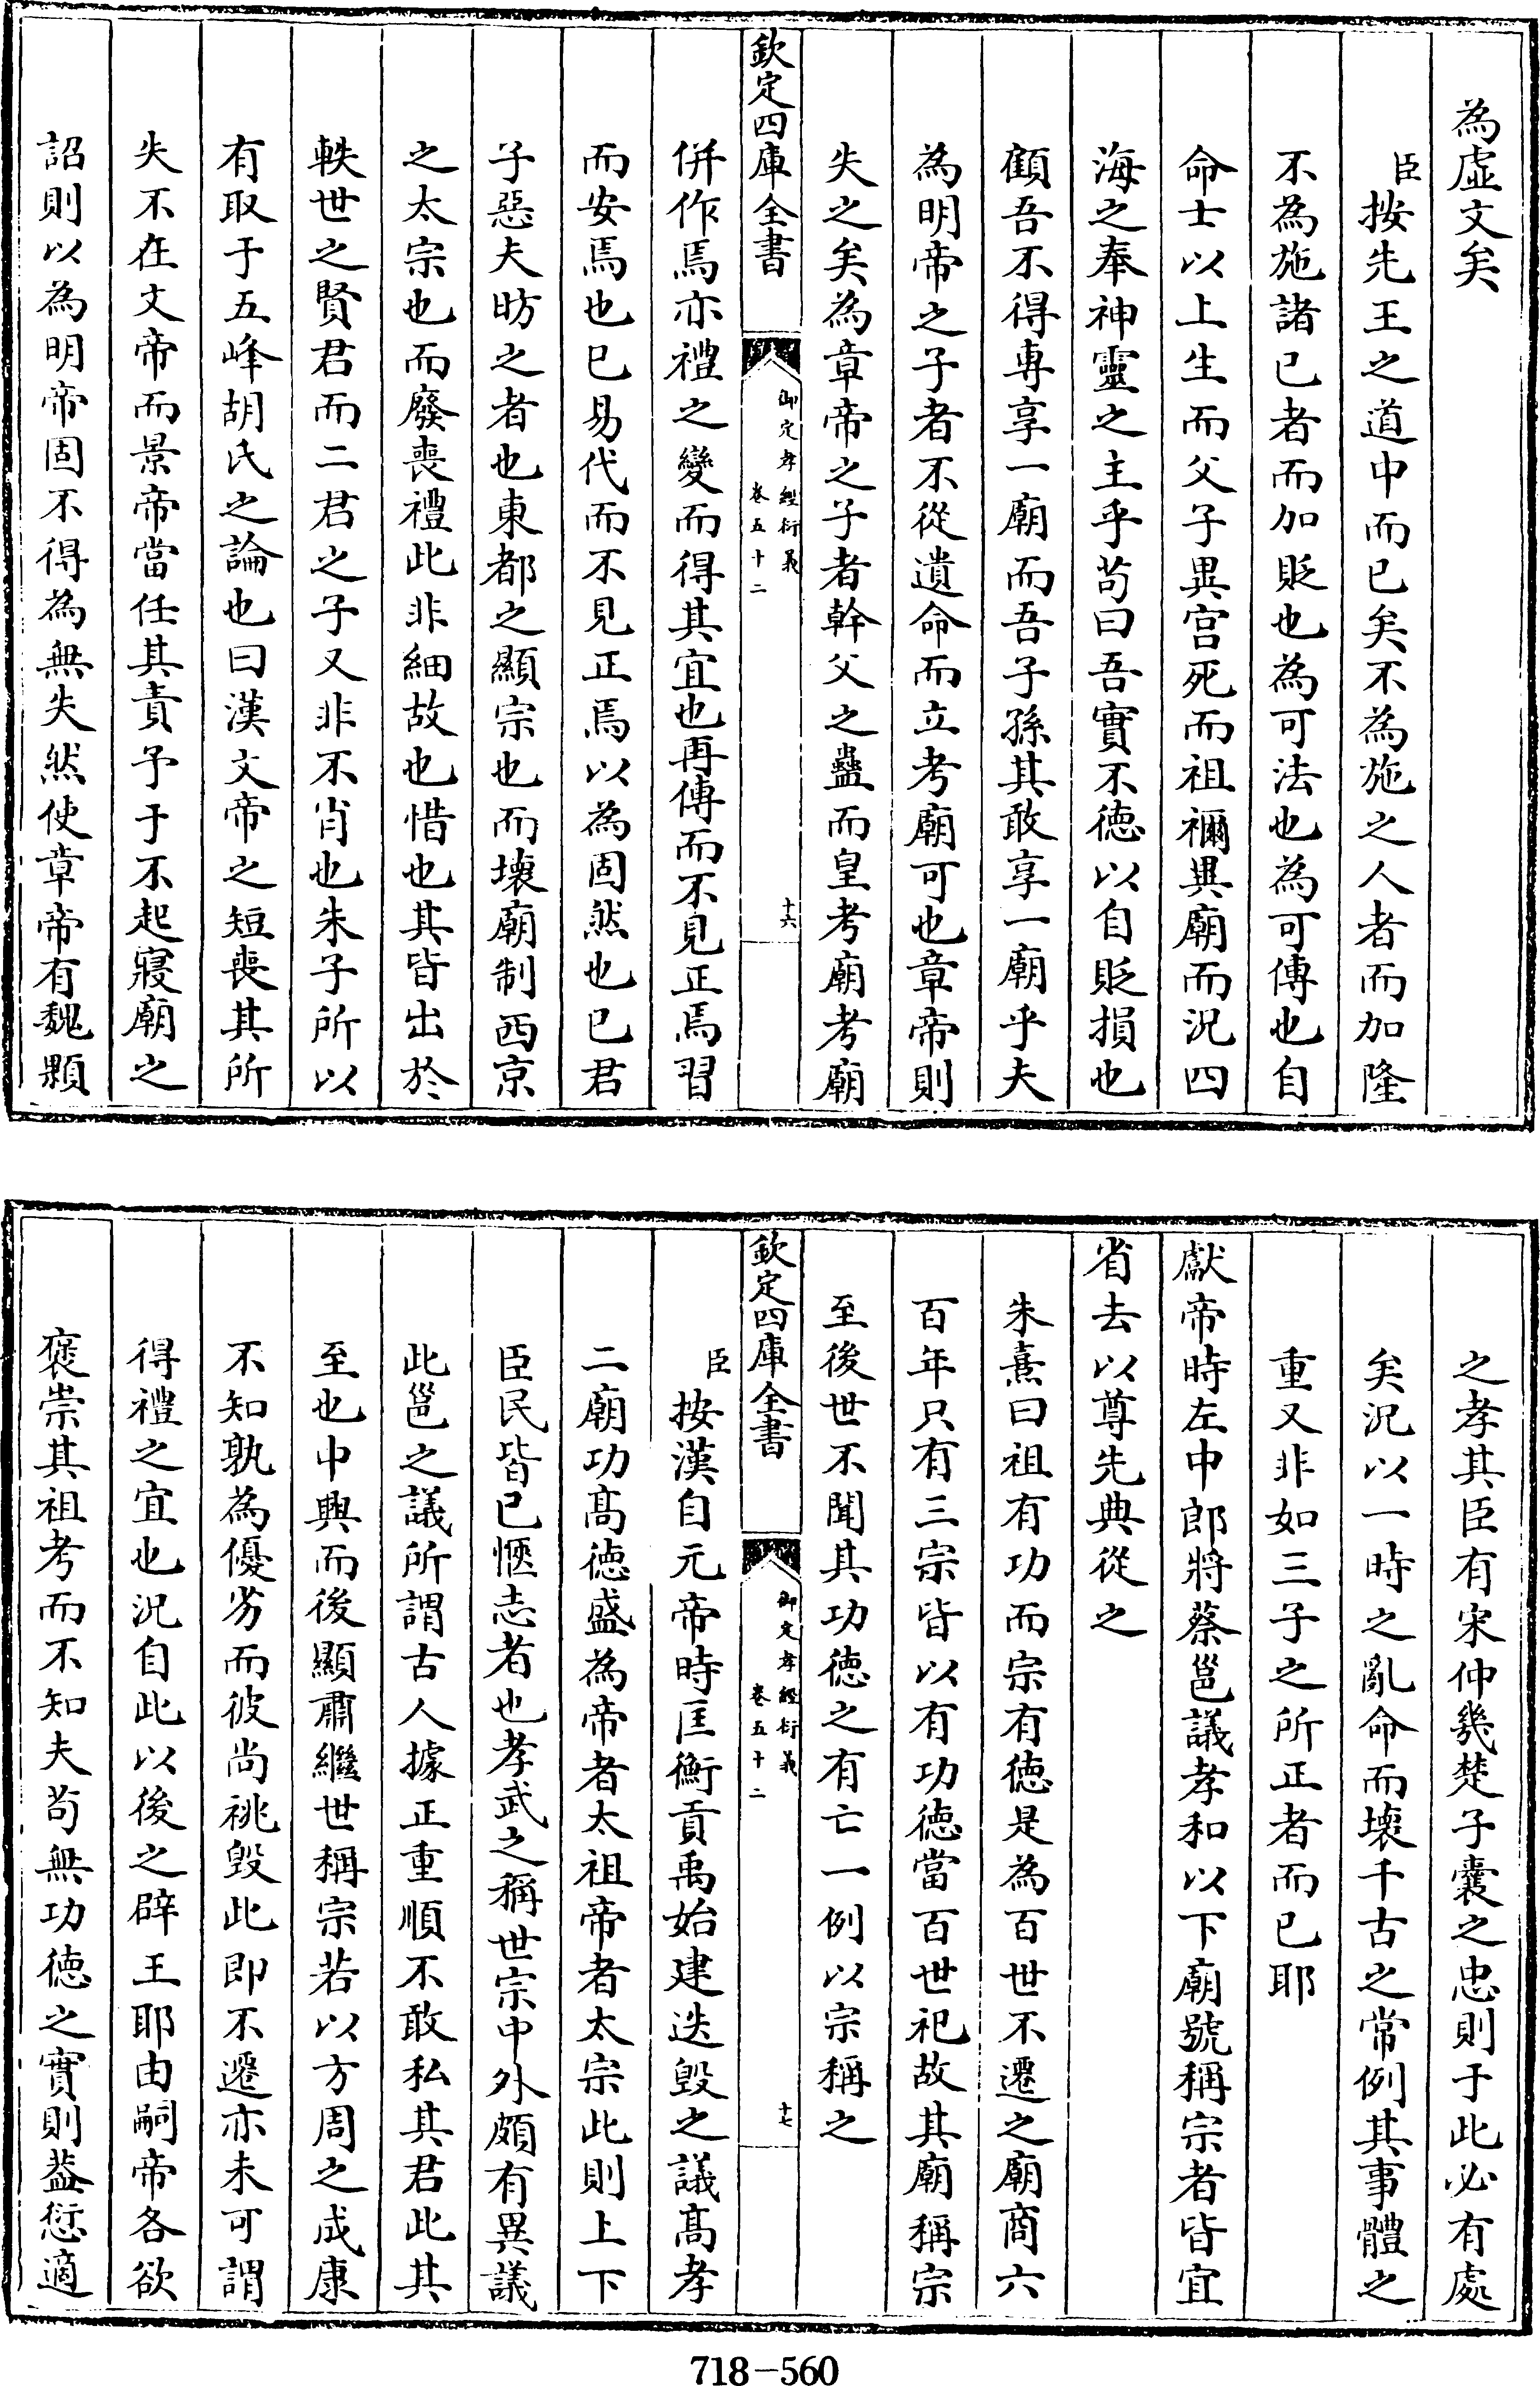 為虛文矣
臣按先王之道中而已矣不為施之人者而加隆
不為施諸已者而加貶也為可法也為可傳也自
命士以上生而父子異宫死而祖禰異廟而況四
海之奉神靈之主乎苟曰吾實不徳以自貶損也
顧吾不得專享一廟而吾子孫其敢享一廟乎夫
為明帝之子者不從遺命而立考廟可也章帝則
失之矣為章帝之子者幹父之蠱而皇考廟考廟
欽定四庫全書
御定孝經衍義
卷五十二
十六
併作焉亦禮之變而得其宜也再傳而不見正焉習
而安焉也已易代而不見正焉以為固然也已君
子惡夫昉之者也東都之顯宗也而壞廟制西京
之太宗也而廢喪禮此非細故也惜也其皆出於
軼世之賢君而二君之子又非不肖也朱子所以
有取于五峰胡氏之論也曰漢文帝之短喪其所
失不在文帝而景帝當任其責予于不起寢廟之
詔則以為明帝固不得為無失然使章帝有魏顆
之孝其臣有宋仲幾楚子囊之忠則于此必有處
矣況以一時之亂命而壞千古之常例其事體之
重又非如三子之所正者而已耶
獻帝時左中郎將蔡邕議孝和以下廟號稱宗者皆宜
省去以尊先典從之
朱熹曰祖有功而宗有徳是為百世不遷之廟商六
百年只有三宗皆以有功徳當百世祀故其廟稱宗
至後世不聞其功徳之有亡一例以宗稱之
欽定四庫全書
御定孝經衍義
卷五十二
十七
臣按漢自元帝時匡衡貢禹始建迭毁之議髙孝
二廟功髙徳盛為帝者太祖帝者太宗此則上下
臣民皆已愜志者也孝武之稱世宗中外頗有異議
此邕之議所謂古人據正重順不敢私其君此其
至也中興而後顯肅繼世稱宗若以方周之成康
不知孰為優劣而彼尚祧毁此即不遷亦未可謂
得禮之宜也況自此以後之辟王耶由嗣帝各欲
褒崇其祖考而不知夫苟無功徳之實則葢愆適
718-560